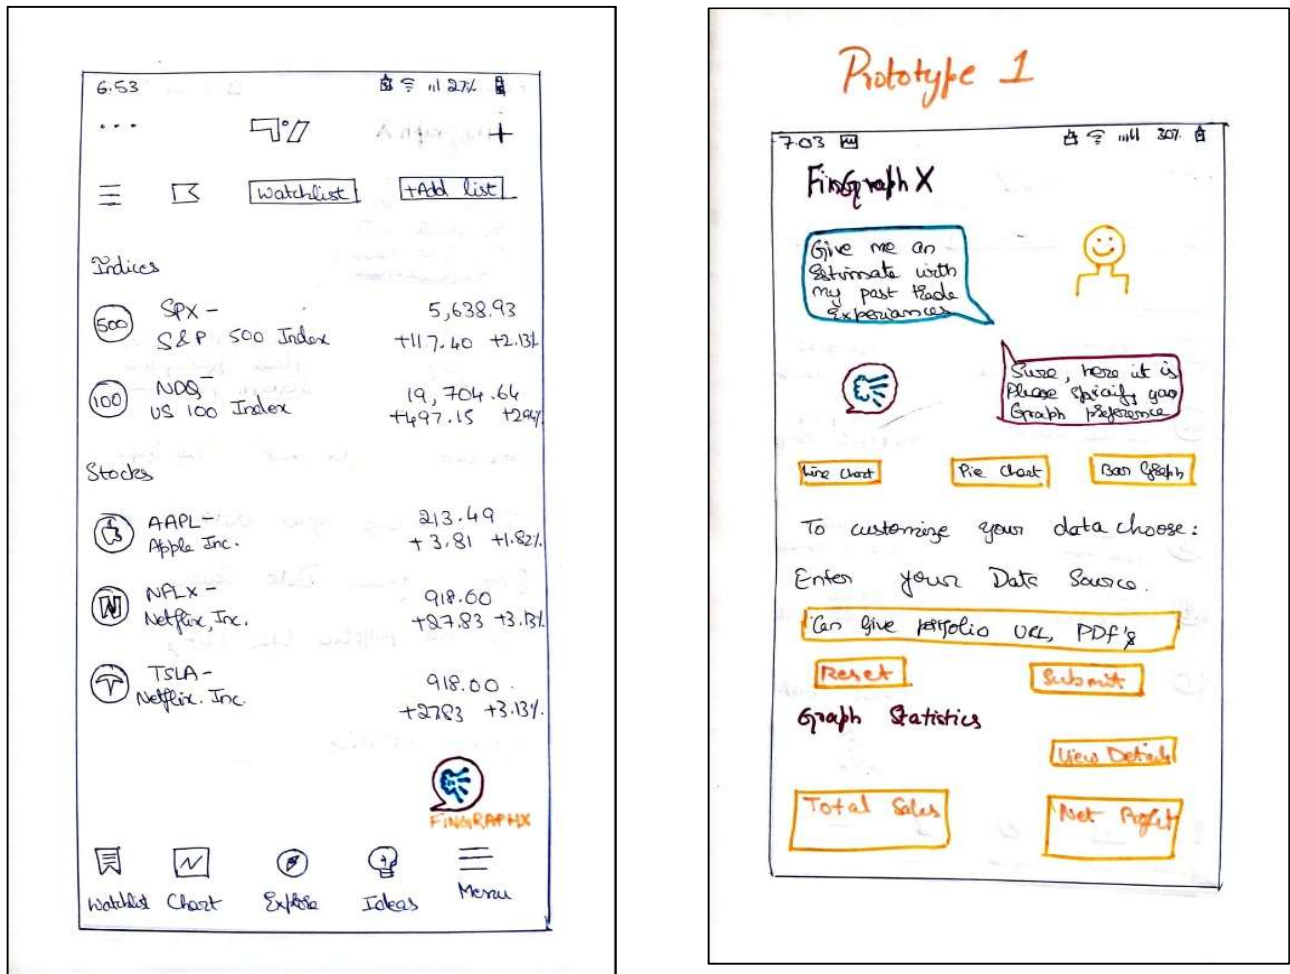 6.53 27%
Watchlist +Add list
Indices
500 SPX - 5,638.93
S&P 500 Index +117.40 +2.13%
100 NDQ - 19,704.64
US 100 Index +497.15
Stocks
AAPL - 213.49
Apple Inc. +3.81 +1.82%
NFLX - 918.00
Netflix, Inc. +27.83 +3.13%
TSLA - 918.00
Netflix. Inc. +2783 +3.13%
FINGRAPHX
Watchlist Chart Explore Ideas Menu
Prototype 1
7.03 30%
FinGraph X
Give me an
Estimate with
my past trade
Experiances
Sure, here it is
Please specify your
Graph preference
Line Chart Pie Chart Bar Graph
To customize your data choose:
Enter your Data Source.
Can give portfolio URL, PDF's
Reset Submit
Graph Statistics
View Details
Total Sales Net Profit